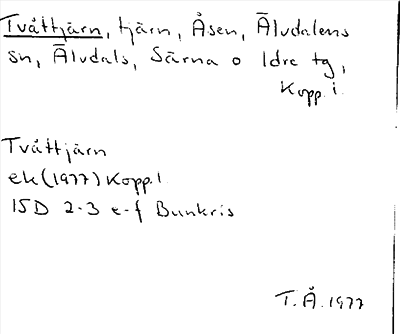 Tvåttjärn, tjärn, Åsen, Älvdalens
sn, Älvdals, Särna o Idre tg,
Kopp. l.
Tvåttjärn
ek (1977) Kopp. l
15D 2-3 e-f Bunkris
T. Å. 1977